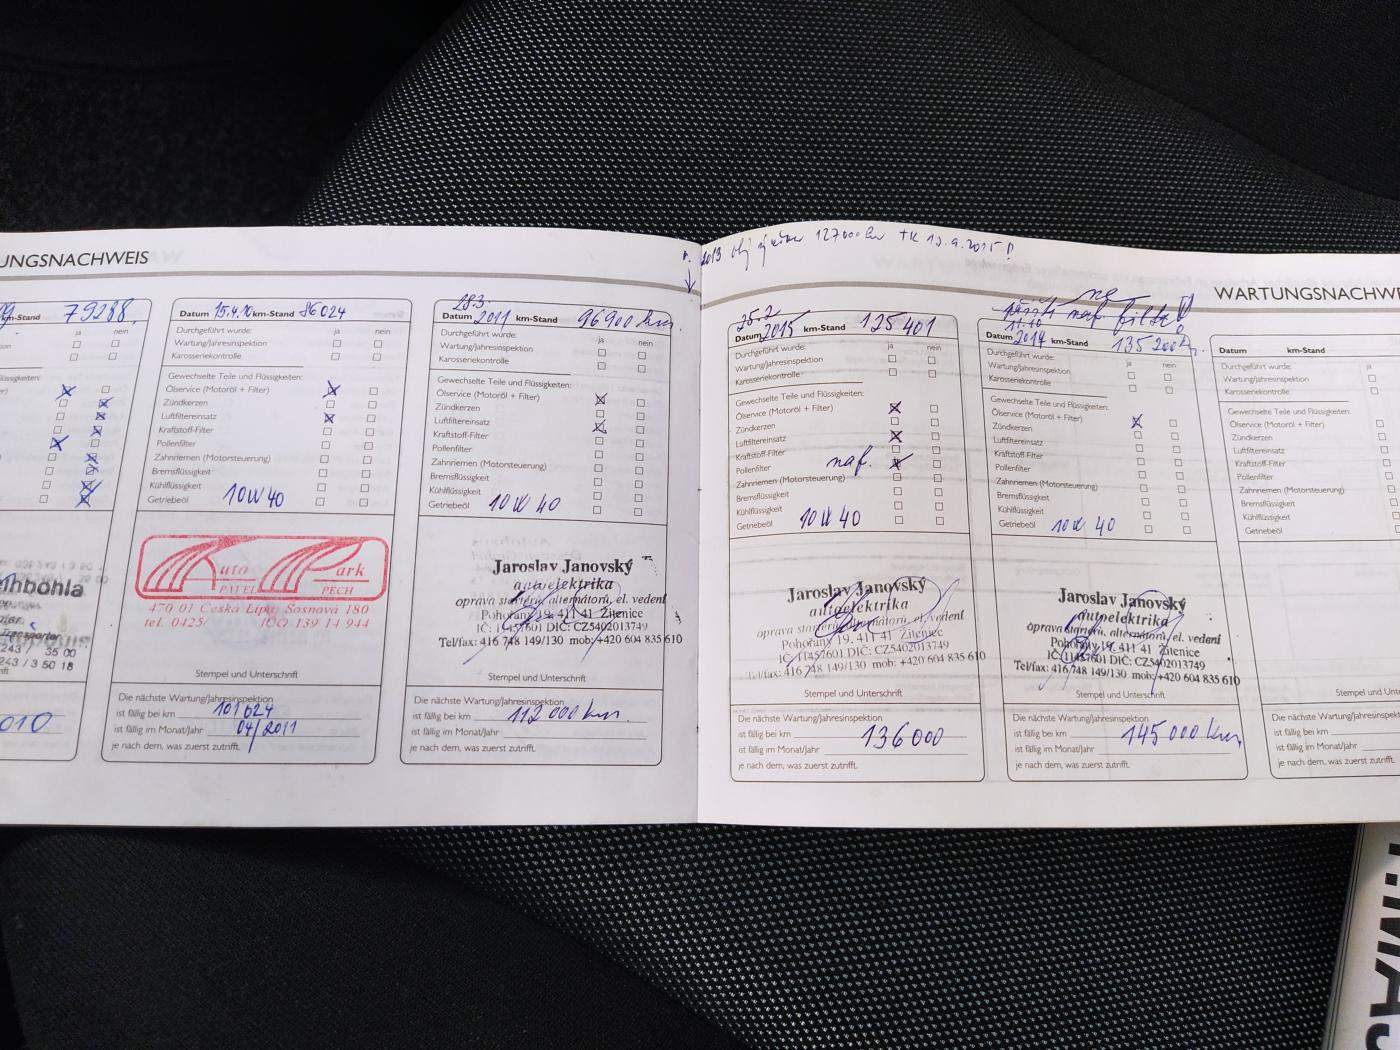 UNGSNACHWEIS
km-Stand 79288
nein
010
Datum 15.4.10 km-Stand 86024
Durchgeführt wurde: ja nein
Wartung/Jahresinspektion
Karosseriekontrolle
Gewechselte Teile und Flüssigkeiten:
Ölservice (Motoröl + Filter)
Zündkerzen
Luftfiltereinsatz
Kraftstoff-Filter
Pollenfilter
Zahnriemen (Motorsteuerung)
Bremsflüssigkeit
Kühlflüssigkeit
Getriebeöl 10W40
Auto Park
PAVEL PECH
470 01 Česká Lípa, Sosnová 180
tel. 0425/ IČO 139 14 944
Stempel und Unterschrift
Die nächste Wartung/Jahresinspektion
ist fällig bei km 101024
ist fällig im Monat/Jahr 04/2011
je nach dem, was zuerst zutrifft.
28.3.
Datum 2011 km-Stand 96900 km.
Durchgeführt wurde: ja nein
Wartung/Jahresinspektion
Karosseriekontrolle
Gewechselte Teile und Flüssigkeiten:
Ölservice (Motoröl + Filter)
Zündkerzen
Luftfiltereinsatz
Kraftstoff-Filter
Pollenfilter
Zahnriemen (Motorsteuerung)
Bremsflüssigkeit
Kühlflüssigkeit
Getriebeöl 10W40
Jaroslav Janovský
autoelektrika
oprava startérů, alternátorů, el. vedení
Pohořany 19, 411 41 Žitenice
IČ: 11457601 DIČ: CZ5402013749
Tel/fax: 416 748 149/130 mob: +420 604 835 610
Stempel und Unterschrift
Die nächste Wartung/Jahresinspektion
ist fällig bei km 112 000 km.
ist fällig im Monat/Jahr
je nach dem, was zuerst zutrifft.
r. 2013 127000 km TK 13.9.2015!
WARTUNGSNACHWE
25.2
Datum 2015 km-Stand 125401
Durchgeführt wurde: ja nein
Wartung/Jahresinspektion
Karosseriekontrolle
Gewechselte Teile und Flüssigkeiten:
Ölservice (Motoröl + Filter)
Zündkerzen
Luftfiltereinsatz
Kraftstoff-Filter
Pollenfilter naf.
Zahnriemen (Motorsteuerung)
Bremsflüssigkeit
Kühlflüssigkeit
Getriebeöl 10W40
Jaroslav Janovský
autoelektrika
oprava startérů, alternátorů, el. vedení
Pohořany 19, 411 41 Žitenice
IČ: 11457601 DIČ: CZ5402013749
Tel/fax: 416 748 149/130 mob: +420 604 835 610
Stempel und Unterschrift
Die nächste Wartung/Jahresinspektion
ist fällig bei km 136000
ist fällig im Monat/Jahr
je nach dem, was zuerst zutrifft.
ne
příště naf filtr!
11.10
Datum 2014 km-Stand 135200 km.
Durchgeführt wurde: ja nein
Wartung/Jahresinspektion
Karosseriekontrolle
Gewechselte Teile und Flüssigkeiten:
Ölservice (Motoröl + Filter)
Zündkerzen
Luftfiltereinsatz
Kraftstoff-Filter
Pollenfilter
Zahnriemen (Motorsteuerung)
Bremsflüssigkeit
Kühlflüssigkeit
Getriebeöl 10W40
Jaroslav Janovský
autoelektrika
oprava startérů, alternátorů, el. vedení
Pohořany 19, 411 41 Žitenice
IČ: 11457601 DIČ: CZ5402013749
Tel/fax: 416 748 149/130 mob: +420 604 835 610
Stempel und Unterschrift
Die nächste Wartung/Jahresinspektion
ist fällig bei km 145 000 km
ist fällig im Monat/Jahr
je nach dem, was zuerst zutrifft.
Datum km-Stand
Durchgeführt wurde: ja
Wartung/Jahresinspektion
Karosseriekontrolle
Gewechselte Teile und Flüssigkeiten:
Ölservice (Motoröl + Filter)
Zündkerzen
Luftfiltereinsatz
Kraftstoff-Filter
Pollenfilter
Zahnriemen (Motorsteuerung)
Bremsflüssigkeit
Kühlflüssigkeit
Getriebeöl
Stempel und Unt
Die nächste Wartung/Jahresinspektion
ist fällig bei km
ist fällig im Monat/Jahr
je nach dem, was zuerst zutrifft.